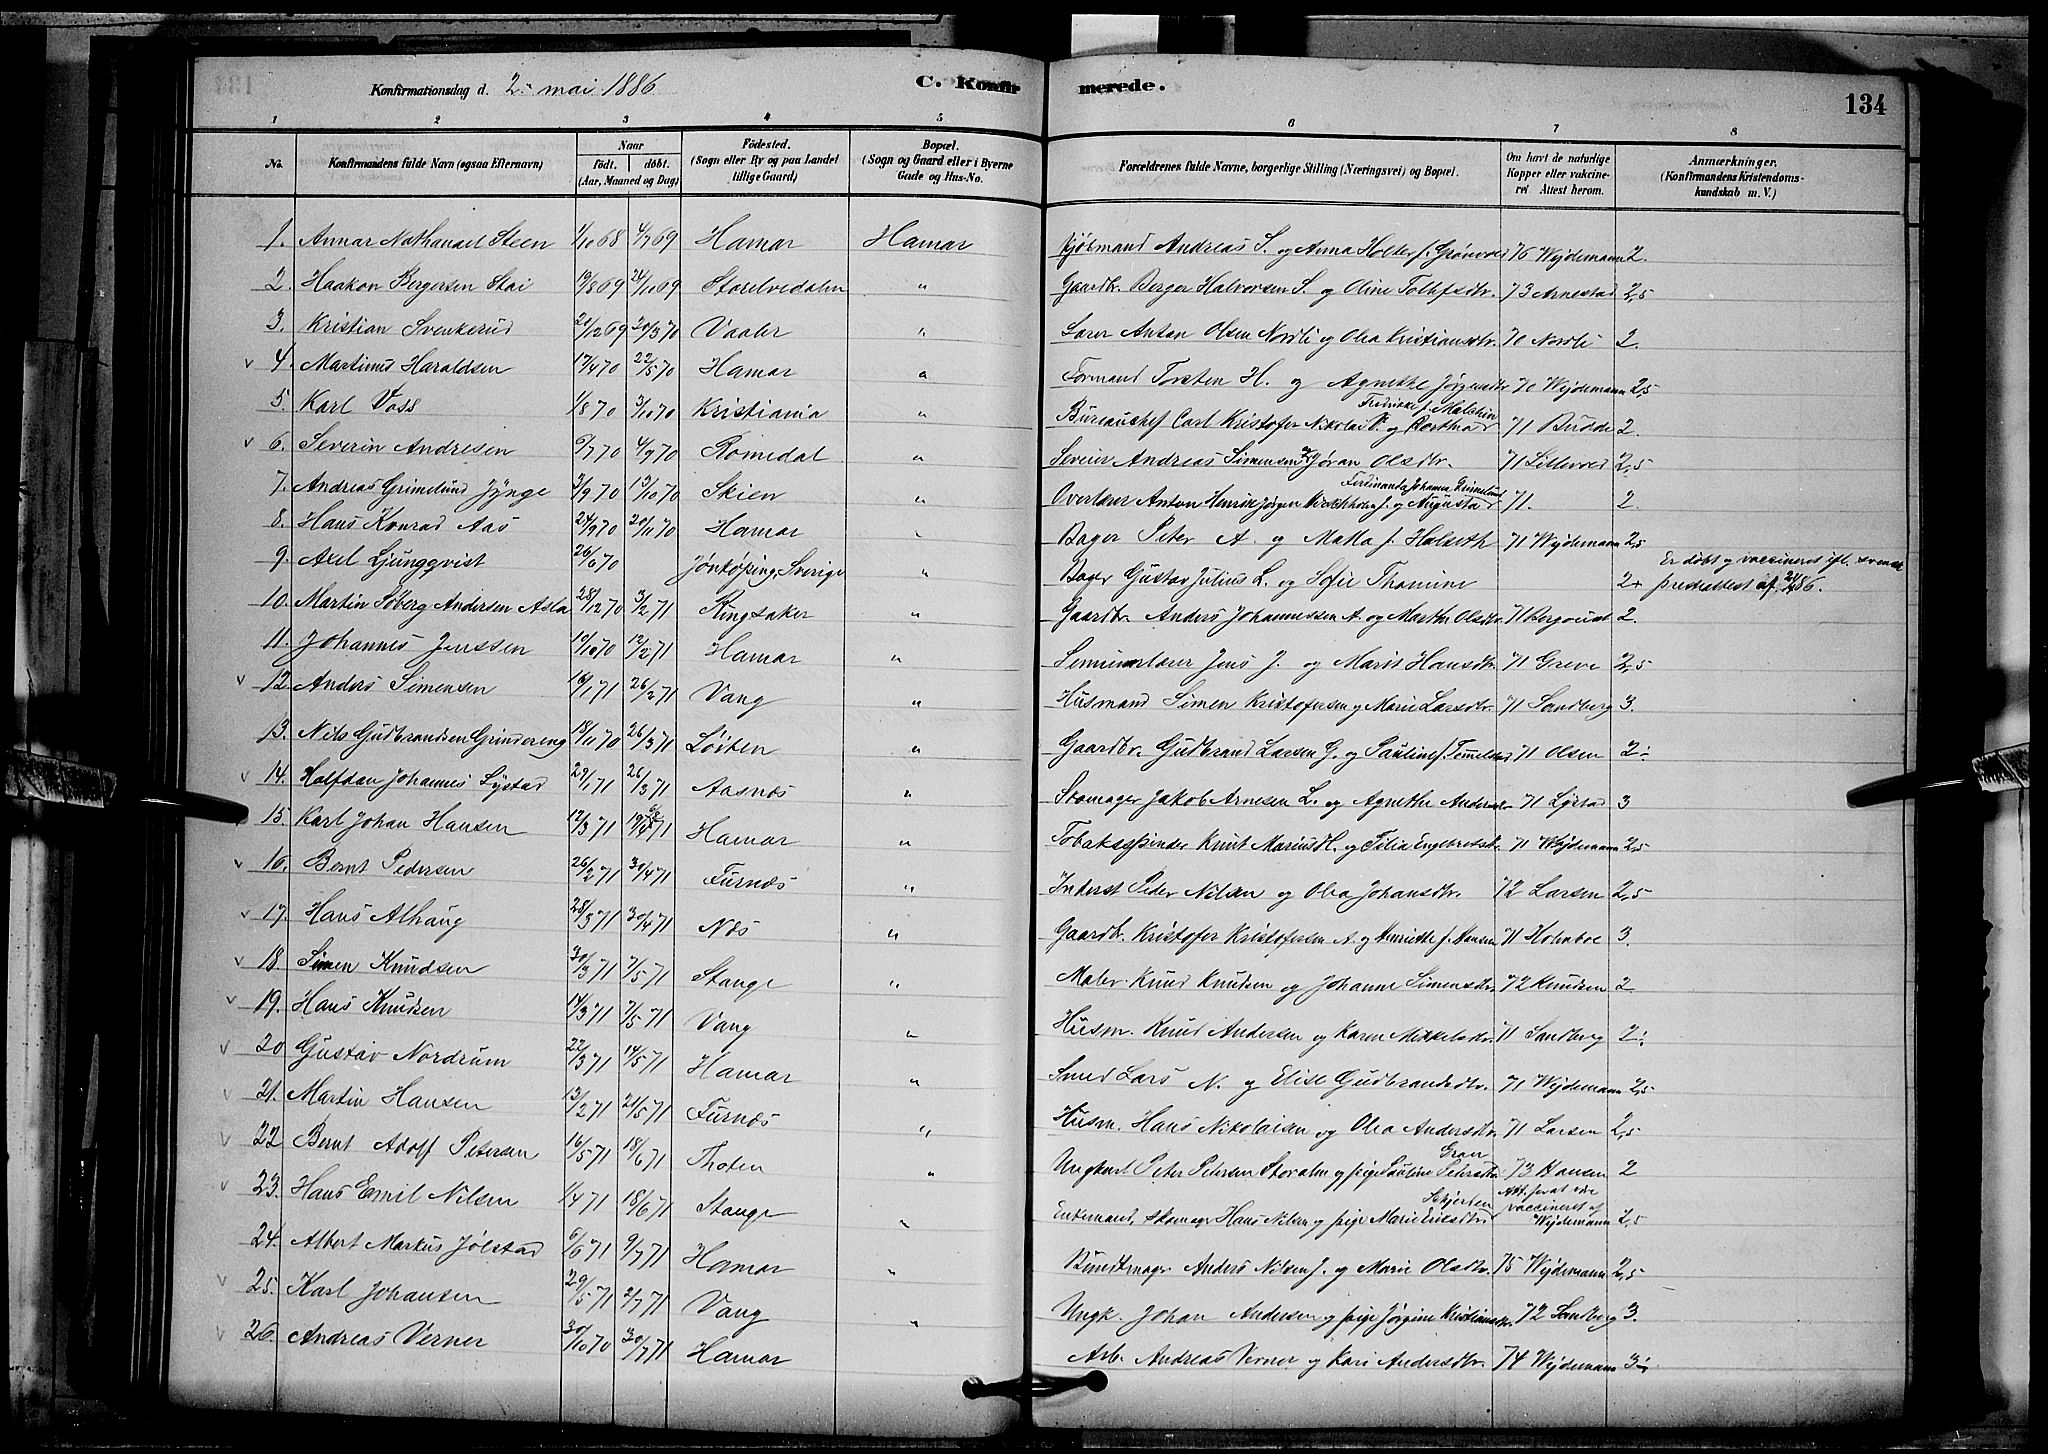 Konfirmationsdag d. 2. mai 1886 C. Konfirmerede. 134
1 2 3 4 5 6 7 8
No. Konfirmandens fulde Navn (ogsaa Efternavn) Naar født. døbt. (Aar, Maaned og Dag) Fødested. (Sogn eller By og paa Landet tillige Gaard) Bopæl. (Sogn og Gaard eller i Byerne Gade og Hus-No. Forældrenes fulde Navne, borgerlige Stilling (Næringsvei) og Bopæl. Om havt de naturlige Kopper eller vaccineret Attest herom. Anmærkninger. (Konfirmandens Kristendomskundskab m. V.)
1. Annar Nathanael Steen 1/10 68 4/7 69 Hamar Hamar Kjøbmand Andreas S. og Anna Holter f. Grønvold 76 Wejdemann 2.
2. Haakon Bergersen Stai 19/8 69 24/10 69 Storelvedalen " Gaardb. Berger Halvorsen S. og Oline Tollefsdtr. 73 Arnestad 2,5
3. Kristian Svenkerud 20/12 69 20/3 70 Vaaler " Lærer Anton Olsen Nordli og Olea Kristiansdtr. 70 Nordli 2.
v 4. Martinus Haraldsen 17/4 70 22/5 70 Hamar " Formand Torsten H. og Agnethe Jørgensdtr 70 Wejdemann 2,5
5. Karl Voss 1/8 70 3/10 70 Kristiania " Bureauchef Carl Kristofer Nikolai V. og Bertha Fredrikke f. Malthin 71 Budde 2.
v 6. Severin Andresen 6/7 70 4/9 70 Romedal " Andreas Simensen og Jøran Olsdtr. 71 Lillevold 2,5
7. Andreas Grimelund Jynge 3/9 70 13/10 70 Skien " Overlærer Anton Henrik Jørgen J. og Augusta Ferdinanda Johanna Grimelund 71. 2
8. Hans Konrad Aas 24/9 70 20/11 70 Hamar " Bager Peter A. og Matea f. Halseth 71 Wejdemann 2,5
9. Axel Ljungqvist 26/6 70 Jønkøping, Sverige " Bager Gustav Julius L. og Sofie Thamine 2+ Er døbt og vaccineret ifl. svensk presteattest af 2/4 86.
10. Martin Søberg Andersen Asla 28/12 70 3/2 71 Ringsaker " Gaardbr. Anders Johannessen A. og Marthe Olsdtr 71 Bergsund 2.
11. Johannes Jenssen 10/10 70 12/2 71 Hamar " Seminarlærer Jens J. og Marit Hansdtr. 71 Greve 2,5
v 12. Anders Simensen 16/1 71 26/2 71 Vang " Husmand Simen Kristofersen og Marie Larsdtr. 71 Sandberg 3.
13. Nils Gudbrandsen Grindereng 18/11 70 26/3 71 Løiten " Gaardbr. Gudbrand Larsen G. og Pauline f. Tommelstad 71 Olsen 2-
v 14. Halfdan Johannes Lystad 29/1 71 26/3 71 Aasnæs " Skomager Jakob Arnesen L. og Agnethe Andersdtr 71 Lystad 3
15. Karl Johan Hansen 12/3 71 19/4 71 Hamar " Tobaksspinder Knut Marius H. og Tilia Engebretsdtr. 71 Wejdemann 2,5
v 16. Bernt Pedersen 26/2 71 30/4 71 Furnæs " Inderst Peder Nilsen og Olea Johansdtr. 72 Larsen 2,5
v 17. Hans Alhaug 28/3 71 30/4 71 Næs " Gaardb. Kristofer Kristofersen A. og Henriette f. Hansen 71 Holmboe 3.
v 18. Simen Knudsen 30/3 71 7/5 71 Stange " Maler Knud Knudsen og Johanne Simensdtr. 72 Knudsen 2
v 19. Hans Knudsen 14/3 71 7/5 71 Vang " Husm. Knud Andersen og Karen Mikkelsdtr. 71 Sandberg 2-
v 20 Gustav Nordrum 22/3 71 14/5 71 Hamar " Smed Lars N. og Elise Gudbrandsdtr. 71 Wejdemann 2,5
v 21. Martin Hansen 12/2 71 21/5 71 Furnæs " Husm. Hans Nikolaisen og Olea Andersdtr. 71 Larsen 2,5
v 22. Bernt Adolf Petersen 16/5 71 18/6 71 Thoten " Ungkarl Peter Petersen Storalm og pige Pauline Petersdtr Gran 73 Hansen 2
v 23. Hans Emil Nilsen 1/4 71 18/6 71 Stange " Enkemand, skomager Hans Nilsen og pige Marie Eriksdtr. Att. for at være vaccineret af Wejdemann 2,5
24. Albert Markus Jølstad 6/6 71 9/7 71 Hamar " Buntmager Anders Nilsen J. og Marie Olsdtr. 75 Wejdemann 2,5
v 25. Karl Johansen 29/5 71 2/7 71 Vang " Ungk. Johan Andersen og pige Jørgine Kristiansdtr. 72 Sandberg 3.
v 26. Andreas Verner 30/10 70 30/7 71 Hamar Arb. Andreas Verner og Kari Andersdtr. 74 Wejdemann 3-